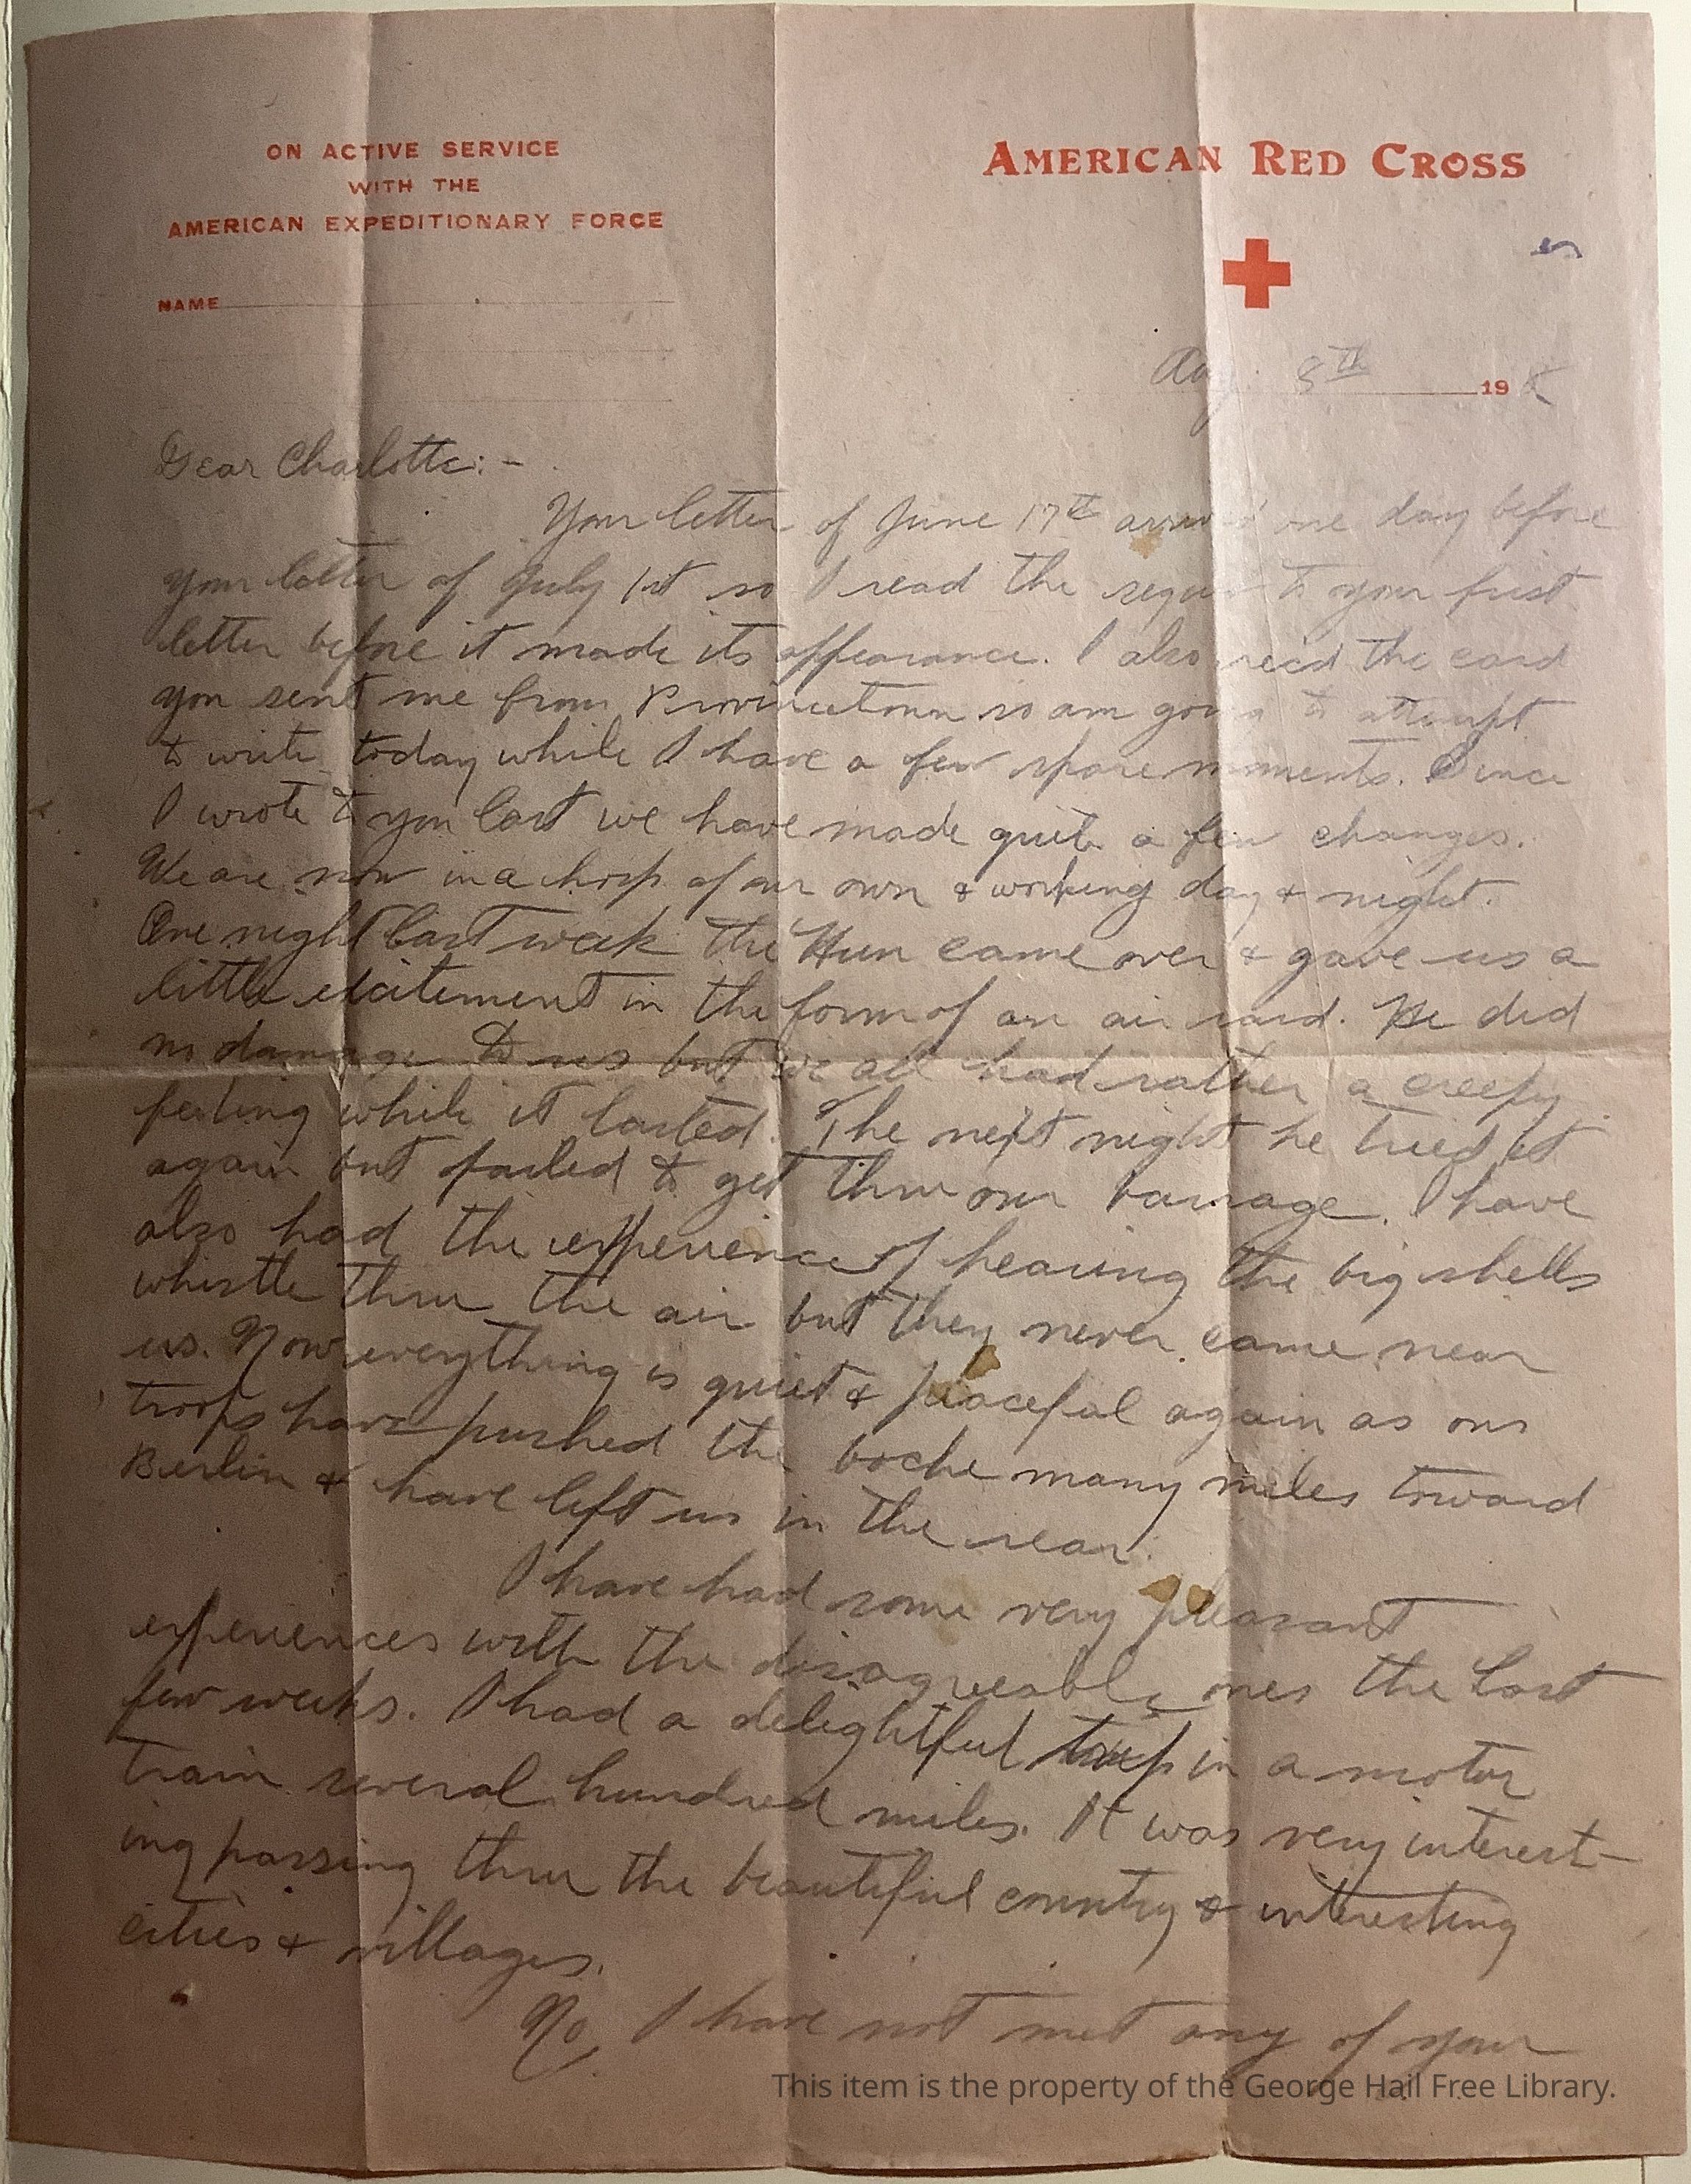 ON ACTIVE SERVICE
WITH THE
AMERICAN EXPEDITIONARY FORCE
NAME
AMERICAN RED CROSS
Aug. 8th 1918
Dear Charlotte:-
Your letter of June 17th arrived one day before
your letter of July 1st so I read the sequel to your first
letter before it made its appearance. I also rec'd the card
you sent me from Provincetown so am going to attempt
to write today while I have a few spare moments. Since
I wrote to you last we have made quite a few changes.
We are now in a hosp of our own & working day & night.
One night last week the Hun came over & gave us a
little excitement in the form of an air raid. He did
no damage to us but we all had rather a creepy
feeling while it lasted. The next night he tried it
again but failed to get thru our barrage. I have
also had the experience of hearing the big shells
whistle thru the air but they never came near
us. Now everything is quiet & peaceful again as our
troops have pushed the boche many miles toward
Berlin & have left us in the rear.
I have had some very pleasant
experiences with the disagreeable ones the last
few weeks. I had a delightful trip in a motor
train several hundred miles. It was very interest-
ing passing thru the beautiful country & interesting
cities & villages.
No, I have not met any of your
This item is the property of the George Hail Free Library.